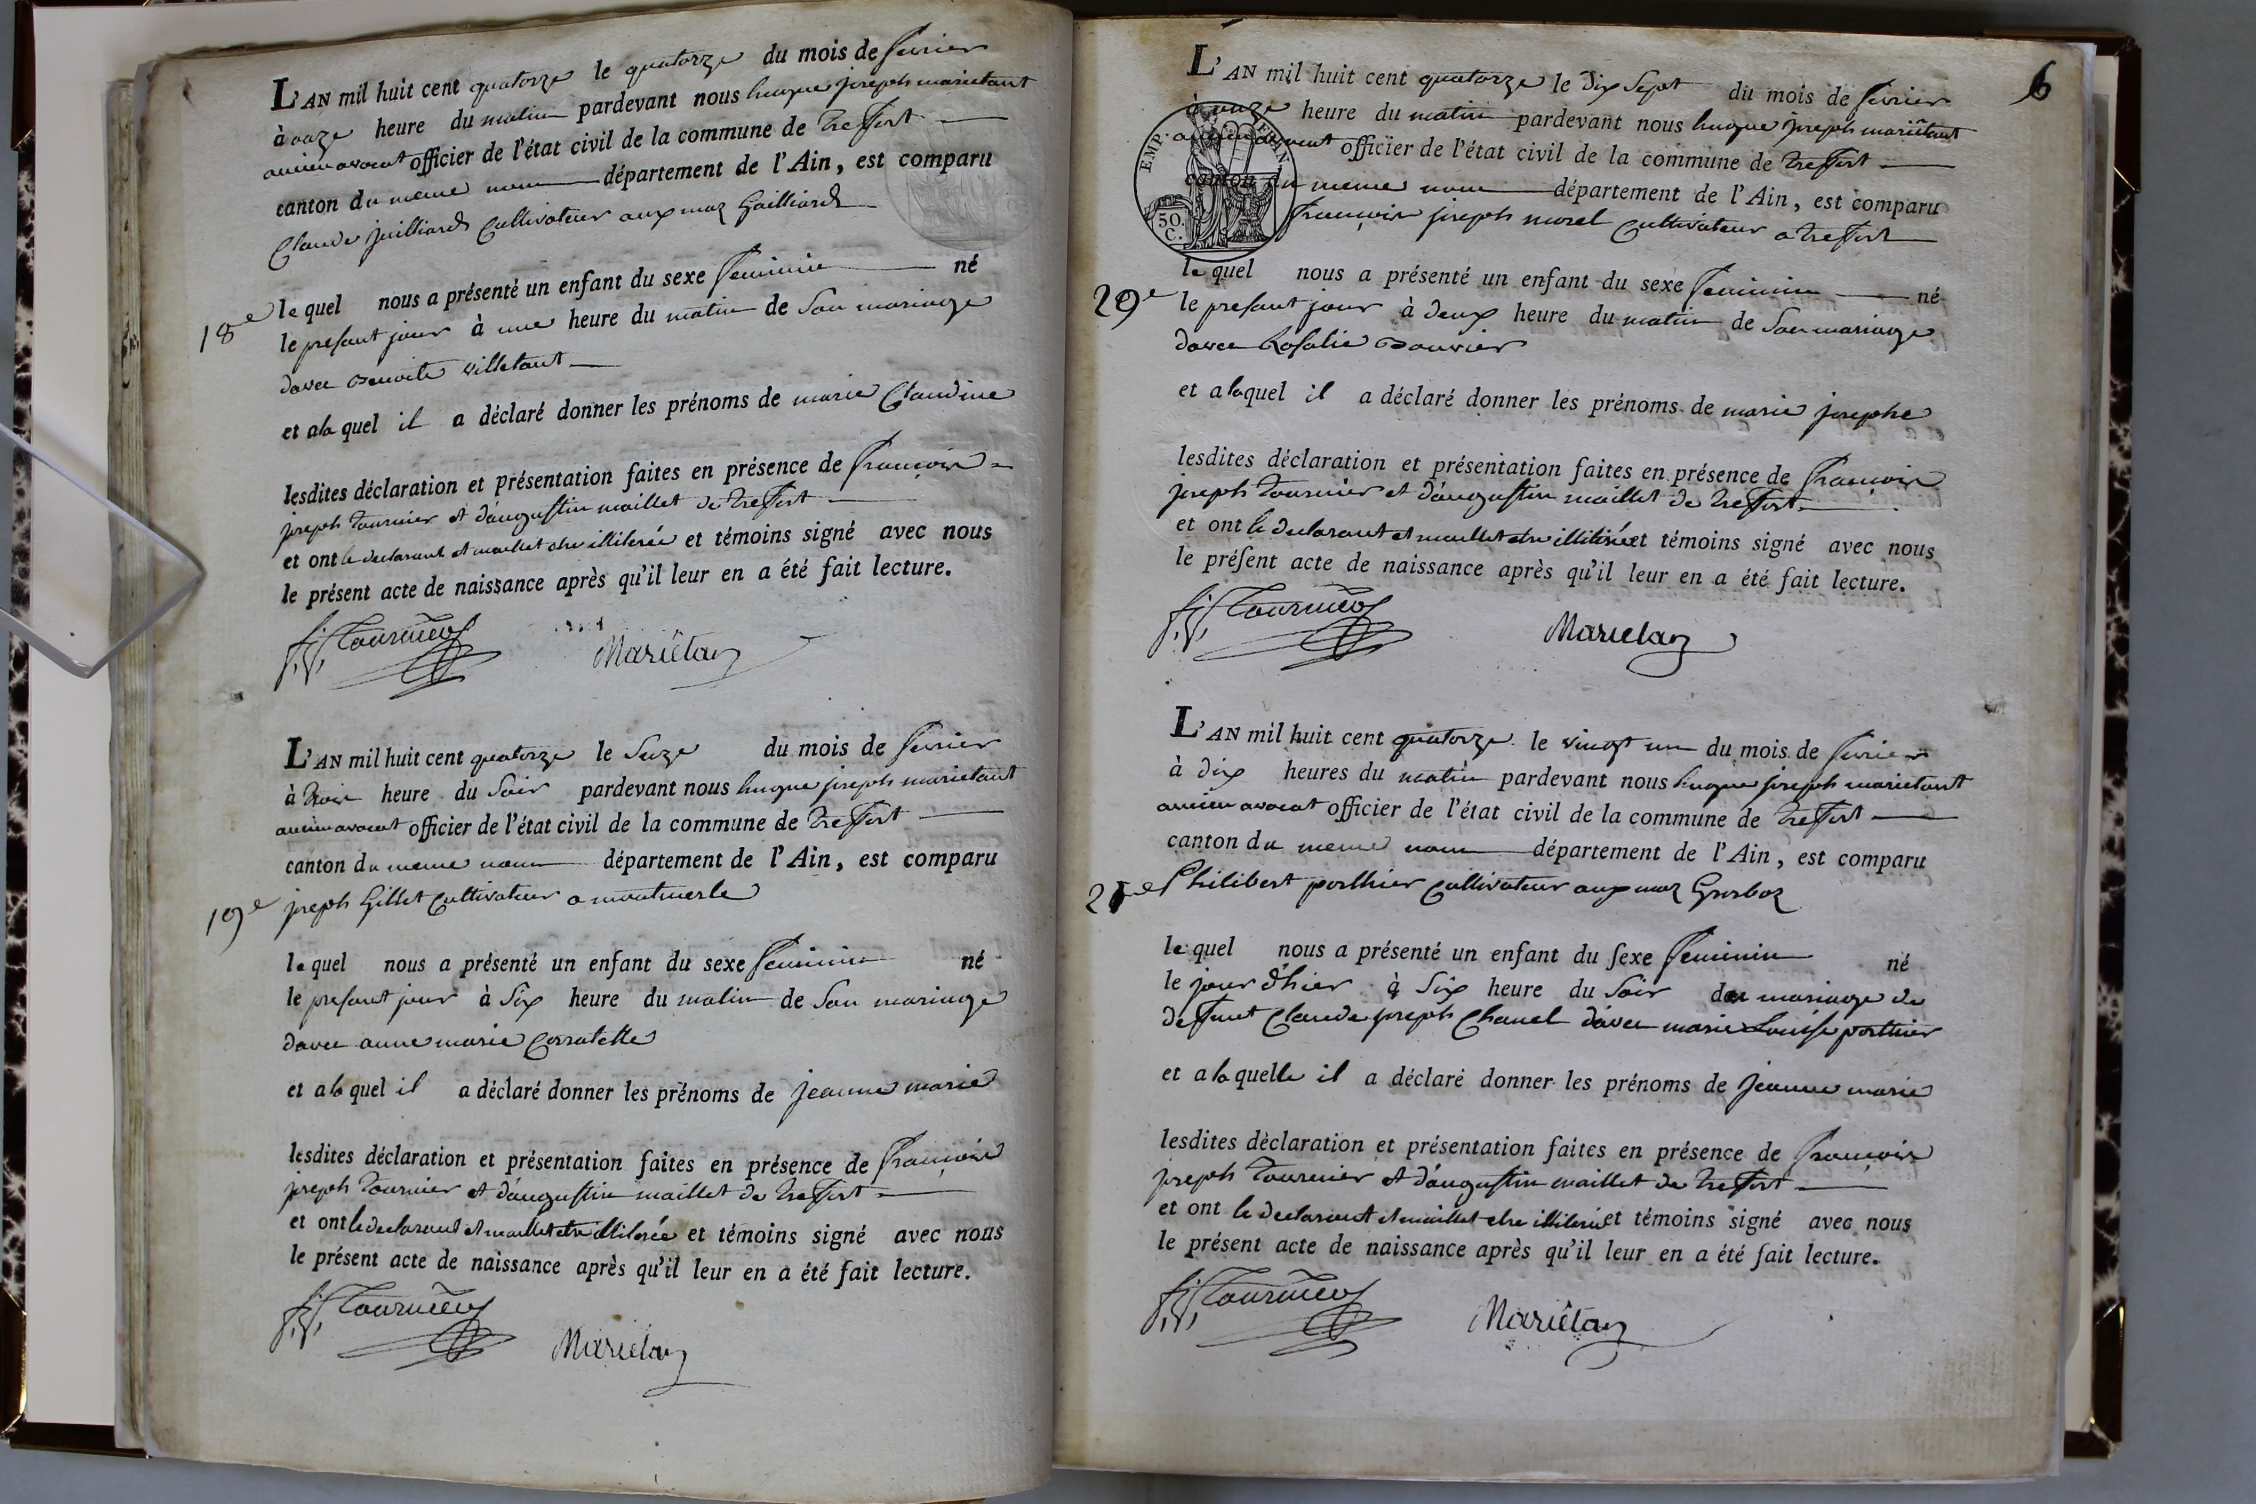 L'AN mil huit cent quatorze le quatorze du mois de fevrier
à onze heure du matin pardevant nous hugue joseph marietant
ancien avocat officier de l'état civil de la commune de treffort
canton du meme nom département de l'Ain, est comparu
Claude juilliard Cultivateur aux maz Gailliard
18e
le quel nous a présenté un enfant du sexe feminin né
le presant jour à une heure du matin de son mariage
davec Benoite villetant
et ala quel il a déclaré donner les prénoms de marie Claudine
lesdites déclaration et présentation faites en présence de françois
joseph tournier et d'augustin maillet de treffort
et ont le declarant et maillet etre illiterée et témoins signé avec nous
le présent acte de naissance après qu'il leur en a été fait lecture.
f. j. Tournier Mariêtan
L'AN mil huit cent quatorze le seize du mois de fevrier
à trois heure du soir pardevant nous hugue joseph marietant
ancien avocat officier de l'état civil de la commune de treffort
canton du meme nom département de l'Ain, est comparu
19e joseph Gillet Cultivateur a montmerle
le quel nous a présenté un enfant du sexe feminin né
le presant jour à six heure du matin de son mariage
davec anne marie Corratette
et ala quel il a déclaré donner les prénoms de jeanne marie
lesdites déclaration et présentation faites en présence de françois
joseph tournier et d'augustin maillet de treffort
et ont le declarant et maillet etre illiterée et témoins signé avec nous
le présent acte de naissance après qu'il leur en a été fait lecture.
f. j. Tournier Marietan
6
L'AN mil huit cent quatorze le dix sept du mois de fevrier
à onze heure du matin pardevant nous hugue joseph mariêtant
ancien avocat officier de l'état civil de la commune de treffort
canton du meme nom département de l'Ain, est comparu
françois joseph morel Cultivateur a treffort
EMP. FRAN.
50.
C.
le quel nous a présenté un enfant du sexe feminin né
20e le presant jour à deux heure du matin de son mariage
davec Rosalie Bouvier
et alaquel il a déclaré donner les prénoms de marie josephe
lesdites déclaration et présentation faites en présence de françois
joseph tournier et d'augustin maillet de treffort
et ont le declarant et maillet etre illiterée et témoins signé avec nous
le présent acte de naissance après qu'il leur en a été fait lecture.
f. j. Tournier Marietan
L'AN mil huit cent quatorze le vingt un du mois de fevrier
à dix heures du matin pardevant nous hugue joseph marietant
ancien avocat officier de l'état civil de la commune de treffort
canton du meme nom département de l'Ain, est comparu
21e Philibert porthier Cultivateur aux maz Grosboz
le quel nous a présenté un enfant du sexe feminin né
le jour d'hier à six heure du soir du mariage de
deffunt Claude joseph Chanel davec marie Louise porthier
et alaquelle il a déclaré donner les prénoms de jeanne marie
lesdites déclaration et présentation faites en présence de françois
joseph tournier et d'augustin maillet de treffort
et ont le declarant et maillet etre illiterée et témoins signé avec nous
le présent acte de naissance après qu'il leur en a été fait lecture.
f. j. Tournier Mariêtan